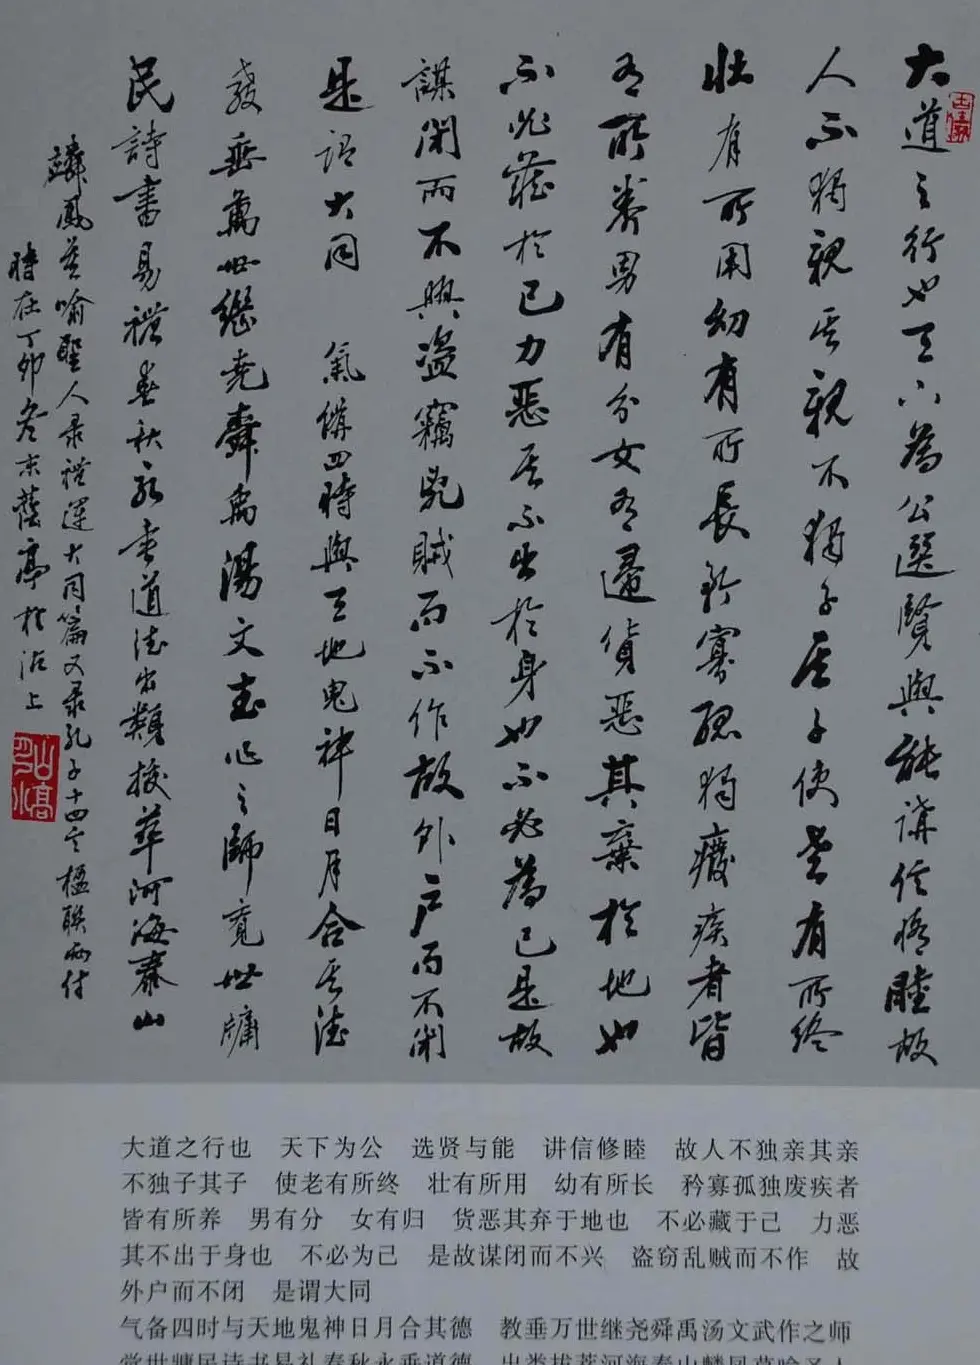 大道之行也天下為公選賢與能講信脩睦故
人不獨親其親不獨子其子使老有所終
壯有所用幼有所長矜寡孤獨癈疾者皆
有所養男有分女有歸貨惡其棄於地也
不必藏於己力惡其不出於身也不必為己是故
謀閉而不興盜竊亂賊而不作故外戶而不閉
是謂大同 氣備四時與天地鬼神日月合其德
教垂萬世繼堯舜禹湯文武作之師覺世牖
民詩書易禮春秋永垂道德出類拔萃河海泰山
麟鳳莫喻聖人录禮運大同篇又录孔子十四楹联兩付
時在丁卯冬末蔭亭於沽上
山高月小
大道之行也 天下为公 选贤与能 讲信修睦 故人不独亲其亲
不独子其子 使老有所终 壮有所用 幼有所长 矜寡孤独废疾者
皆有所养 男有分 女有归 货恶其弃于地也 不必藏于己 力恶
其不出于身也 不必为己 是故谋闭而不兴 盗窃乱贼而不作 故
外户而不闭 是谓大同
气备四时与天地鬼神日月合其德 教垂万世继尧舜禹汤文武作之师
觉世牖民诗书易礼春秋永垂道德 出类拔萃河海泰山麟凤莫喻圣人